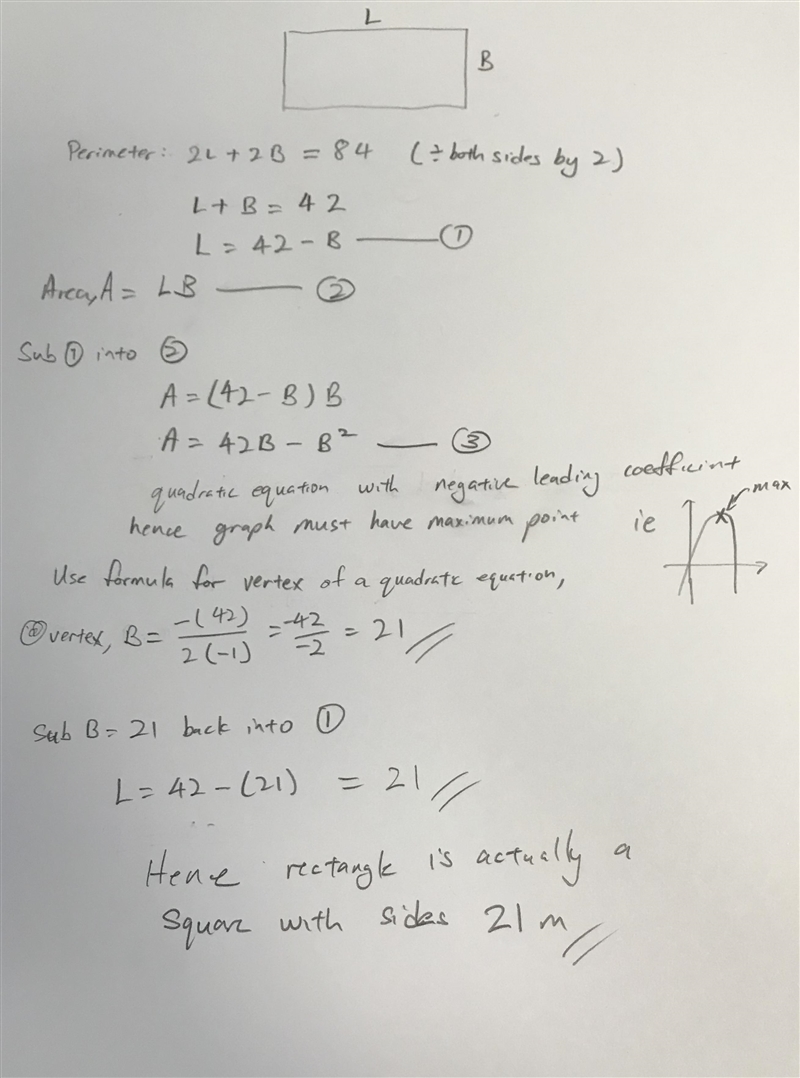 L
B
Perimeter: 2L + 2B = 84 (÷ both sides by 2)
L + B = 42
L = 42 - B —— ①
Area, A = LB —— ②
Sub ① into ②
A = (42 - B) B
A = 42B - B² —— ③
quadratic equation with negative leading coefficient
hence graph must have maximum point ie
max
Use formula for vertex of a quadratc equation,
@ vertex, B = -(42)/2(-1) = -42/-2 = 21 //
Sub B = 21 back into ①
L = 42 - (21) = 21 //
Hence rectangle is actually a
square with sides 21 m //